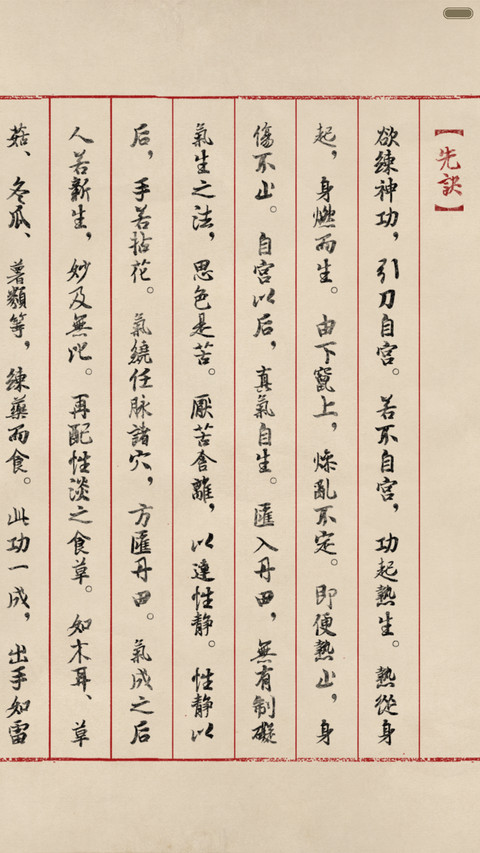 【先訣】
欲練神功，引刀自宮。若不自宮，功起熱生。熱從身
起，身燃而生。由下竄上，燥亂不定。即便熱止，身
傷不止。自宮以后，真氣自生。匯入丹田，無有制礙
氣生之法，思色是苦。厭苦舍離，以達性靜。性靜以
后，手若拈花。氣繞任脉諸穴，方匯丹田。氣成之后
人若新生，妙及無比。再配性淡之食草。如木耳、草
菇、冬瓜、薯類等，練藥而食。此功一成，出手如雷